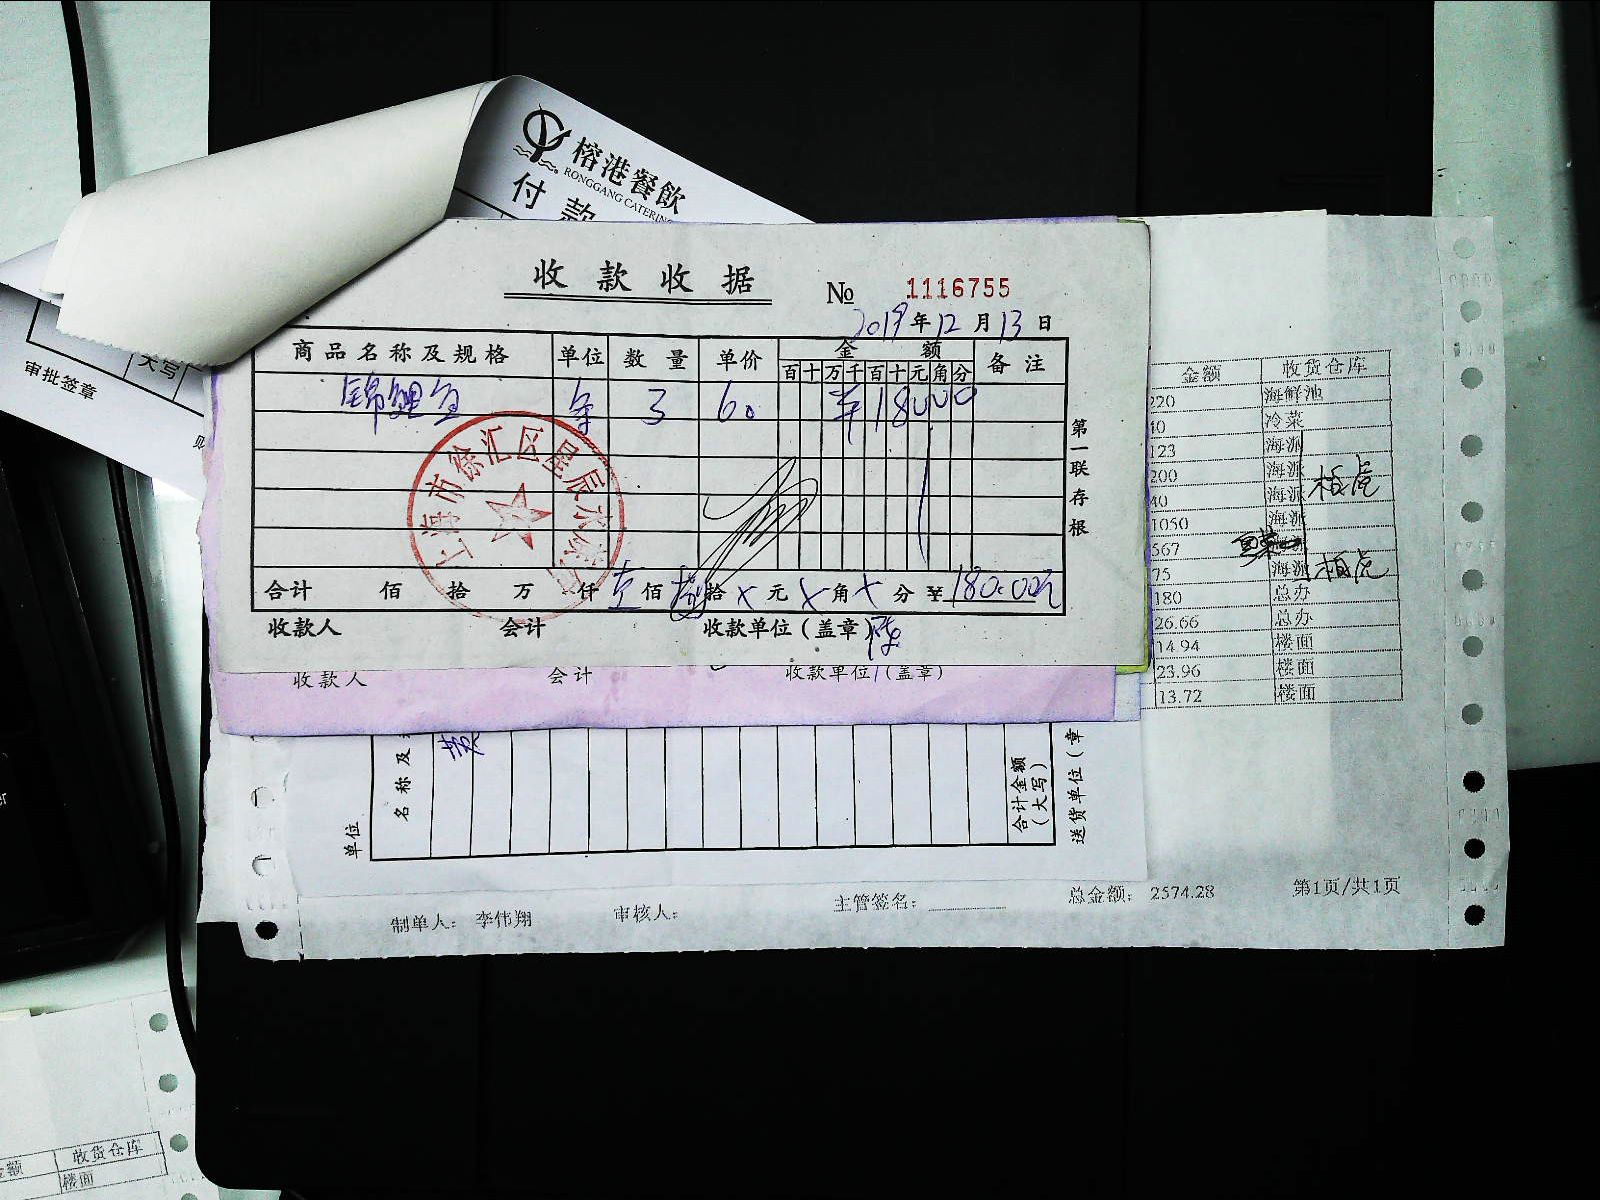 榕港餐飲
RONGGANG CATERING
付款
大写
审批签章
收款收据
№ 1116755
2019年12月13日
商品名称及规格 单位 数量 单价 金额 备注
百十万千百十元角分
锦鲤鱼 条 3 60 ¥18000
第一联存根
上海市徐汇区星辰水族
合计 佰 拾 万 仟 壹佰 捌拾 x元 x角 x分 ¥180.00元
收款人 会计 收款单位(盖章)
收款人 会计 收款单位(盖章)
金额 收货仓库
220 海鲜池
40 冷菜
123 海派
200 海派
40 海派
1050 海派
567
75 海派
180 总办
26.66 总办
14.94 楼面
23.96 楼面
13.72 楼面
单位
名称及
合计金额
(大写)
送货单位(章
制单人: 李伟翔 审核人: 主管签名: 总金额: 2574.28 第1页/共1页
金额 收货仓库
楼面